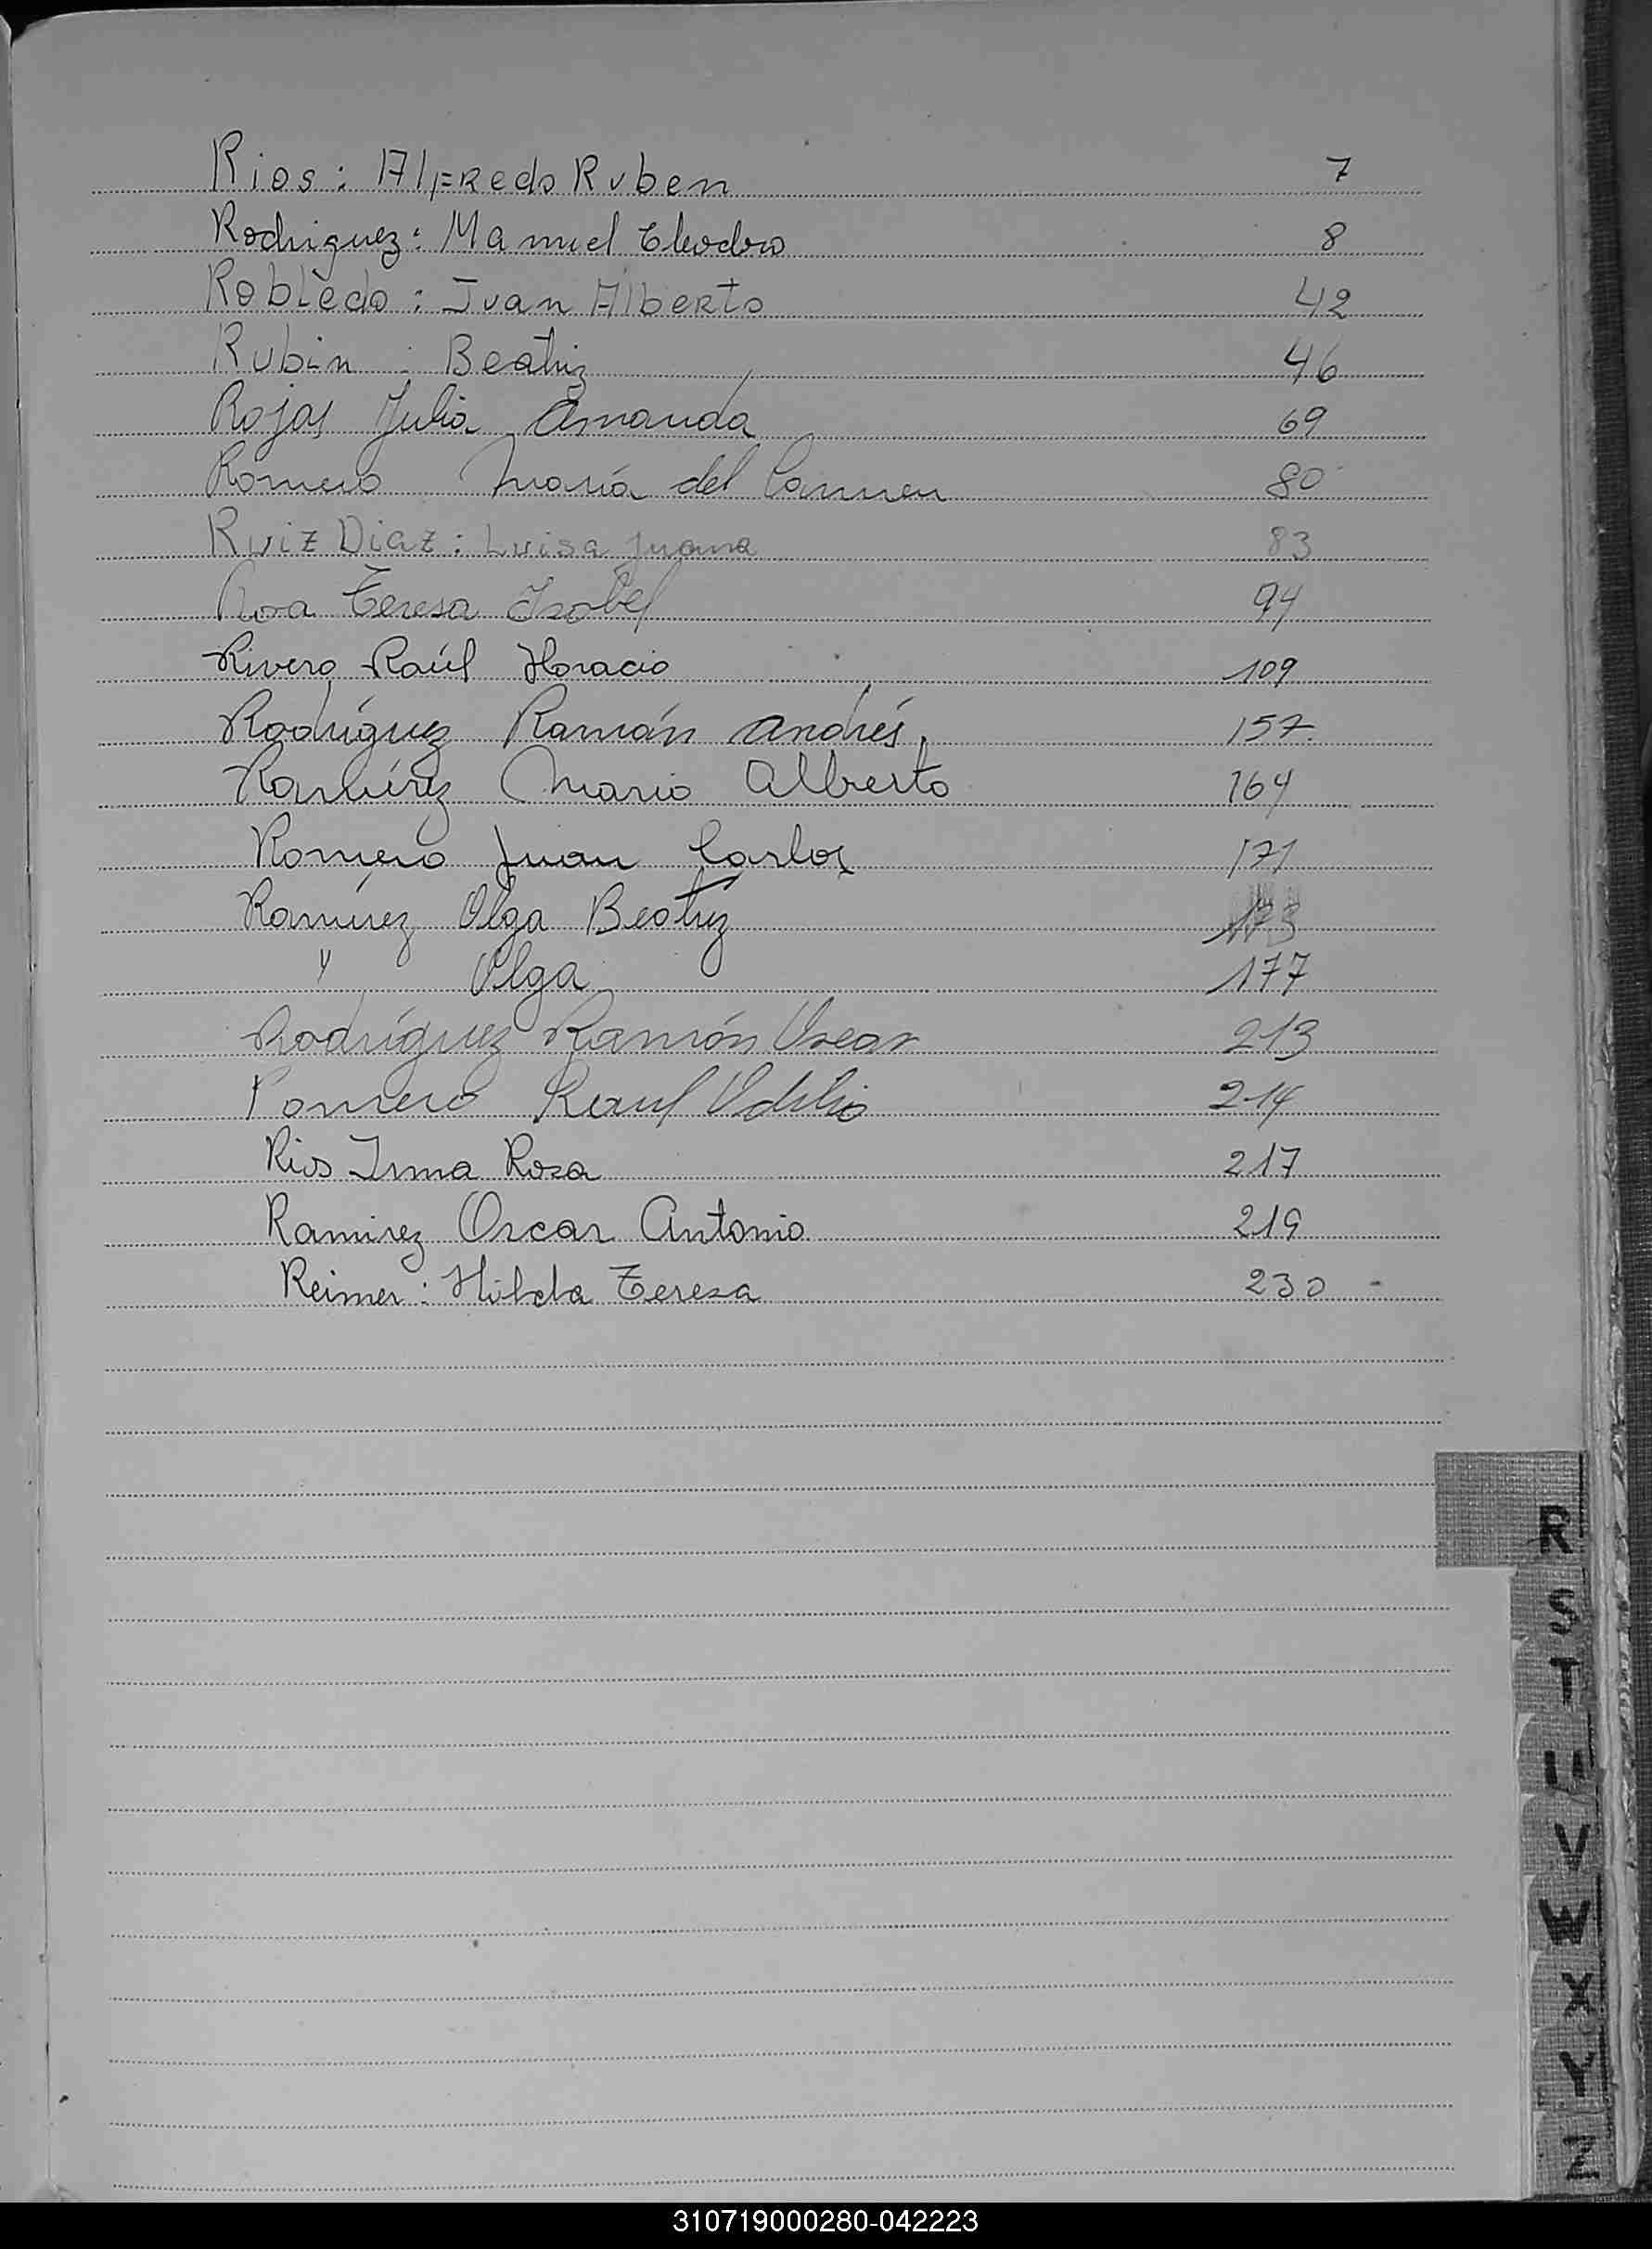 Rios: Alfredo Ruben 7
Rodriguez: Manuel Eleodoro 8
Robledo: Juan Alberto 42
Rubin : Beatriz 46
Rojas Julia Amanda 69
Romero María del Carmen 80
Ruiz Diaz: Luisa Juana 83
Roa Teresa Isabel 94
Rivero Raúl Horacio 109
Rodríguez Ramón Andrés. 157
Ramírez Mario Alberto 164
Romero Juan Carlos 171
Ramírez Olga Beatriz 173
" Olga 177
Rodríguez Ramón Oscar 213
Romero Raul Odilio 214
Rios Irma Rosa 217
Ramirez Oscar Antonio 219
Reimer: Hilda Teresa 230 -
R
S
T
U
V
W
X
Y
Z
310719000280-042223